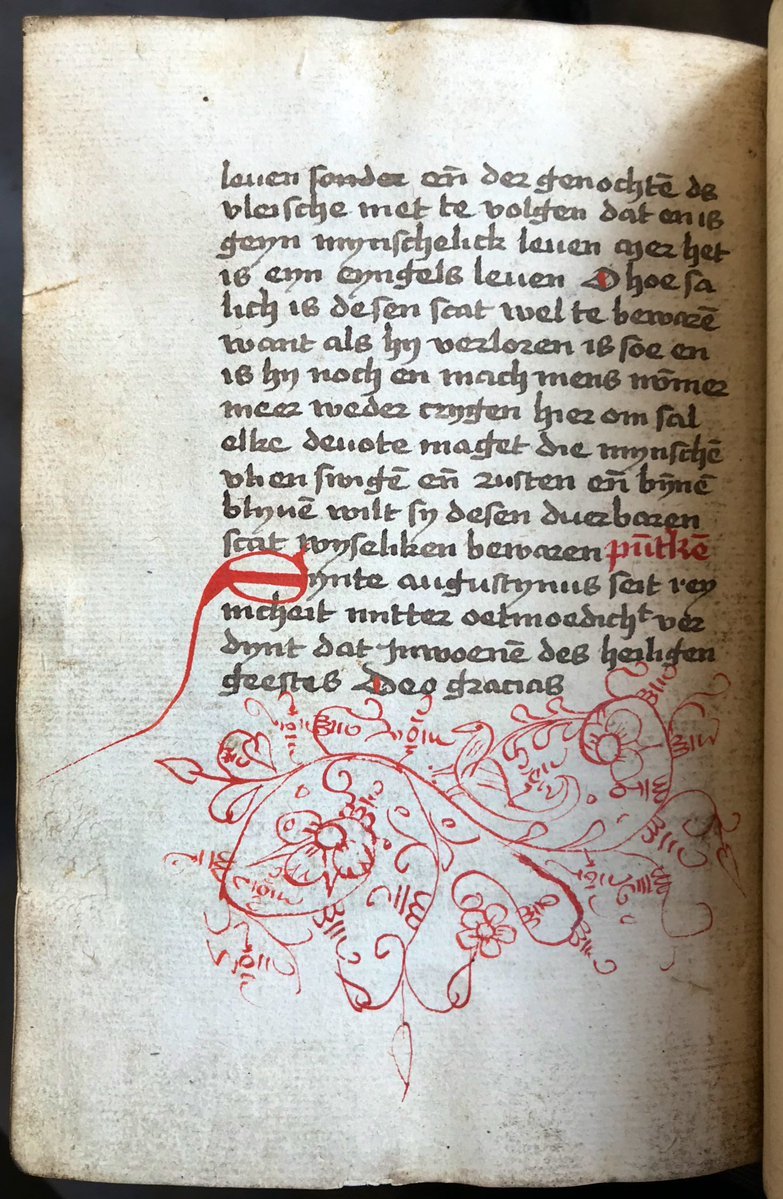 leuen sonder en̄ der genochtē ds
vleische met te volgen dat en is
geyn mynschelick leuen mer het
is eyn eyngels leuen O hoe sa
lich is desen scat wel te bewarē
want als hy verloren is soe en
is hy noch en mach mens nōmer
meer weder crygen hier om sal
elke deuote maget die mynschē
vlien swigē en̄ rusten en̄ bynē
blyuē wilt sy desen duerbaren
scat wyseliken bewaren pūtkē
Synte augustynus seit rey
nicheit mitter oetmoedicht ver
dynt dat Inwoenē des heiligen
geestes Deo gracias